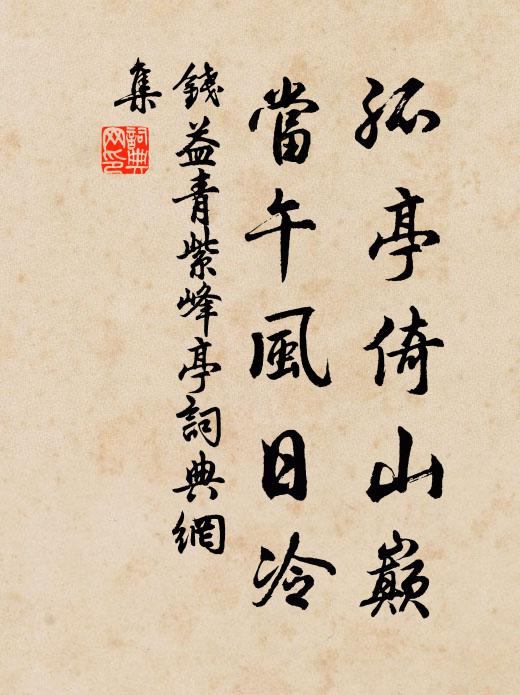 孤亭倚山巔
當午風日冷
錢益青紫峰亭詞典網
集
詞典
网印